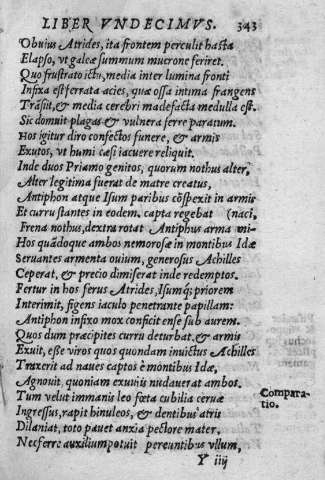 LIBER VNDECIMVS. 343
Obuius Atrides, ita frontem perculit hasta
Elapso, vt galeæ summum mucrone feriret.
Quo frustrato ictu, media inter lumina fronti
Infixa est ferrata acies, quæ ossa intima frangens
Trāsijt, & media cerebri madefacta medulla est.
Sic domuit plagas & vulnera ferre paratum.
Hos igitur diro confectos funere, & armis
Exutos, vt humi cæsi iacuere reliquit.
Inde duos Priamo genitos, quorum nothus alter,
Alter legitima fuerat de matre creatus,
Antiphon atque Isum paribus cōspexit in armis
Et curru stantes in eodem. capta regebat (naci,
Frena nothus, dextra rotat Antiphus arma mi-
Hos quādoque ambos nemorosæ in montibus Idæ
Seruantes armenta ouium, generosus Achilles
Ceperat, & precio dimiserat inde redemptos.
Fertur in hos ferus Atrides, Isumq; priorem
Interimit, figens iaculo penetrante papillam:
Antiphon infixo mox conficit ense sub aurem.
Quos dum præcipites curru deturbat, & armis
Exuit, esse viros quos quondam inuictus Achilles
Traxerit ad naues captos è montibus Idæ,
Agnouit, quoniam exuuijs nudauerat ambos.
Tum velut immanis leo fœta cubilia ceruæ
Compara-
tio.
Ingressus, rapit hinuleos, & dentibus atris
Dilaniat, toto pauet anxia pectore mater,
Nec ferre auxilium potuit pereuntibus vllum,
Y iiij